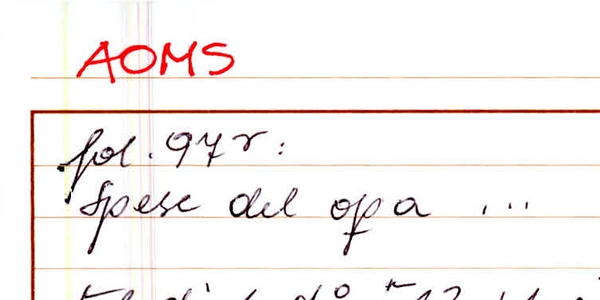 AOMS
fol. 97r:
Spese del opa ...